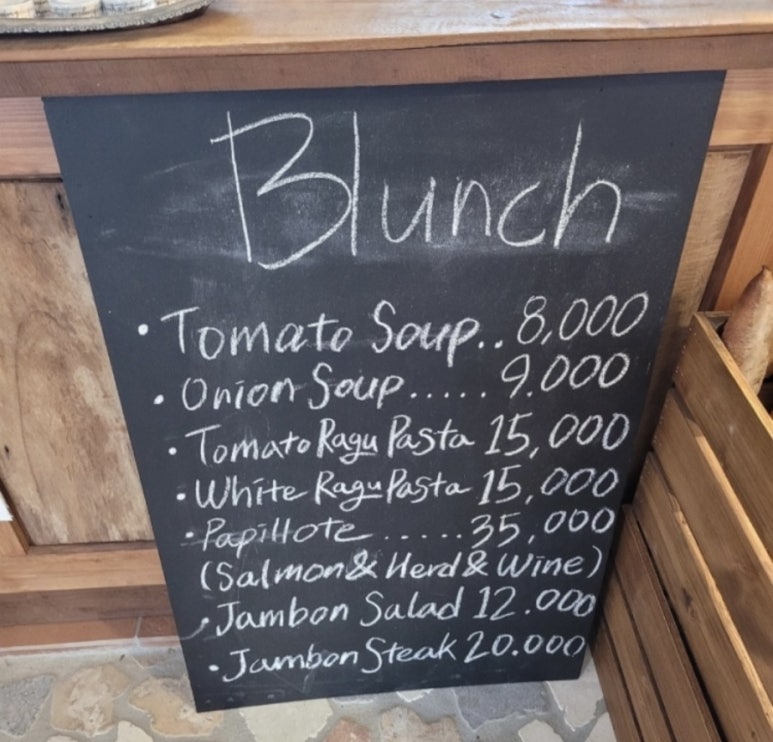 Blunch
· Tomato Soup.. 8,000
· Onion Soup..... 9.000
· Tomato Ragu Pasta 15,000
· White Ragu Pasta 15,000
· Papillote ..... 35,000
(Salmon & Herd & Wine)
· Jambon Salad 12.000
· Jambon Steak 20.000